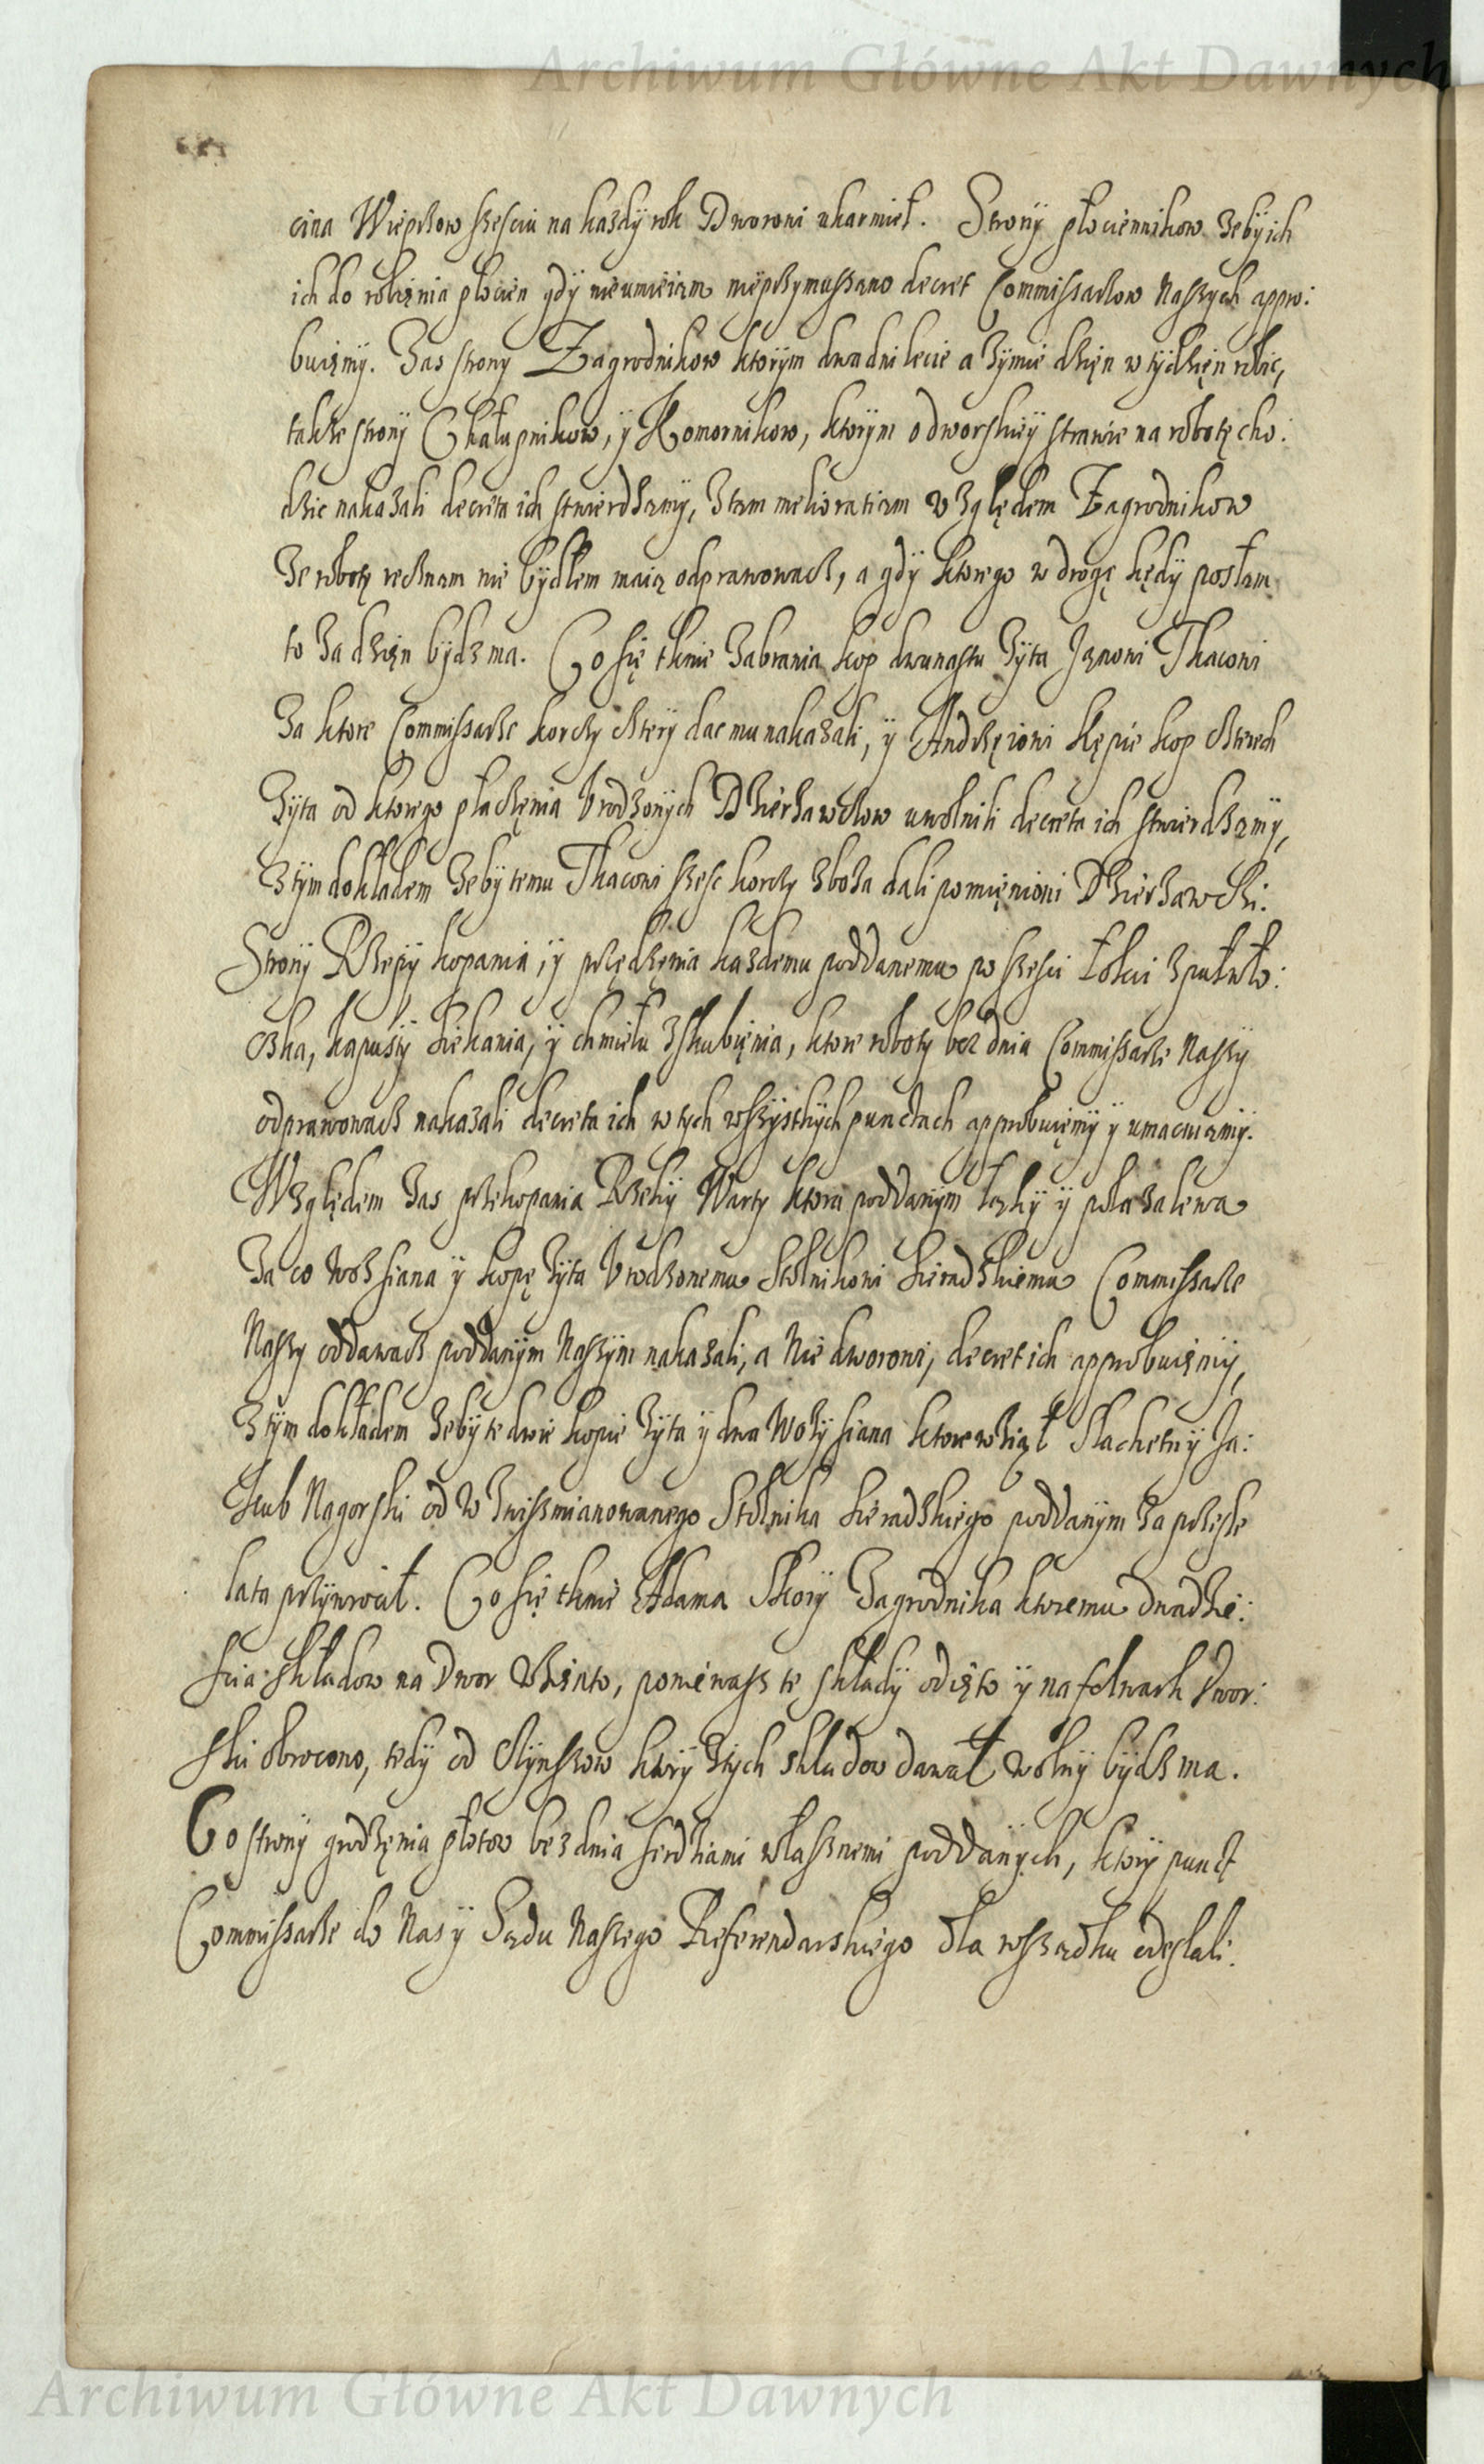 Archiwum Główne Akt Dawnych
cina Wieprzow szesciu na każdy rok Dworowi ukarmieł. Strony płociennikow zeby ich
ich do robięnia płocien gdy nieumieią nieprzymuszano decret Commissarzow Naszych appro:
buięmy. Zas strony Zagrodnikow ktorym dwa dni lecie a zymie dzięn w tydzięn robic,
takze strony Chałupnikow, y Komornikow, ktorym o dworskiey strawie na robotę cho:
dzic nakazali decreta ich stwierdzamy, z tam melioratiam względem Zagrodnikow
ze robotę ręcznam nie bydłem maią odprawowacz, a gdy ktorego w drogę kędy poslam
to za dzięn bydz ma. Co się tknie zabrania kop dwunastu żyta Janowi Tkaczowi
za ktore Commissarze korcy cztery dac mu nakazali, y Andrzęiowi Kępie kop czterech
żyta od ktorego płaczęnia Urodzonych Dzierzawcow uwolnili decreta ich stwierdzamy,
z tym dokładem zeby temu Tkaczowi szesc korcy zboża dali pomięnioni Dzierzawcy.
Strony Rzepy kopania, y przędzęnia każdemu poddanemu po szesci łokci z pułtło:
czka, kapusty siekania, y chmielu zskubięnia, ktore roboty bez dnia Commissarze Naszy
odprawowacz nakazali decreta ich w tych wszystkych punctach approbuięmy y umacniamy.
Względem zas przekopania Rzeky Warty ktora poddanym łąky y pola zalewa
za co woz siana y kopę żyta Urodzonemu Stolnikowi Sieradzkiemu Commissarze
Naszy oddawacz poddanym Naszym nakazali, a Nie dworowi, decret ich approbuięmy,
z tym dokładem zeby te dwie kopie żyta y dwa wozy siana ktore wziął Slachetny Ja:
kub Nagorski od wzwiszmianowanego Stolnika Sieradzkiego poddanym za przeszłe
lata przywrocił. Co się tknie Adama Skory Zagrodnika ktoremu dwadzie:
scia składow na Dwor wzięto, poniewasz te składy odięto y na folwark Dwor:
ski obrocono, tedy od czynszow ktory z tych składow dawał wolny bydz ma.
Co strony grodzęnia płotow bez dnia serdziami własznemi poddanych, ktory punct
Commissarze do Nas y Sądu Naszego Referendarskiego dla rosządku odesłali.
Archiwum Główne Akt Dawnych